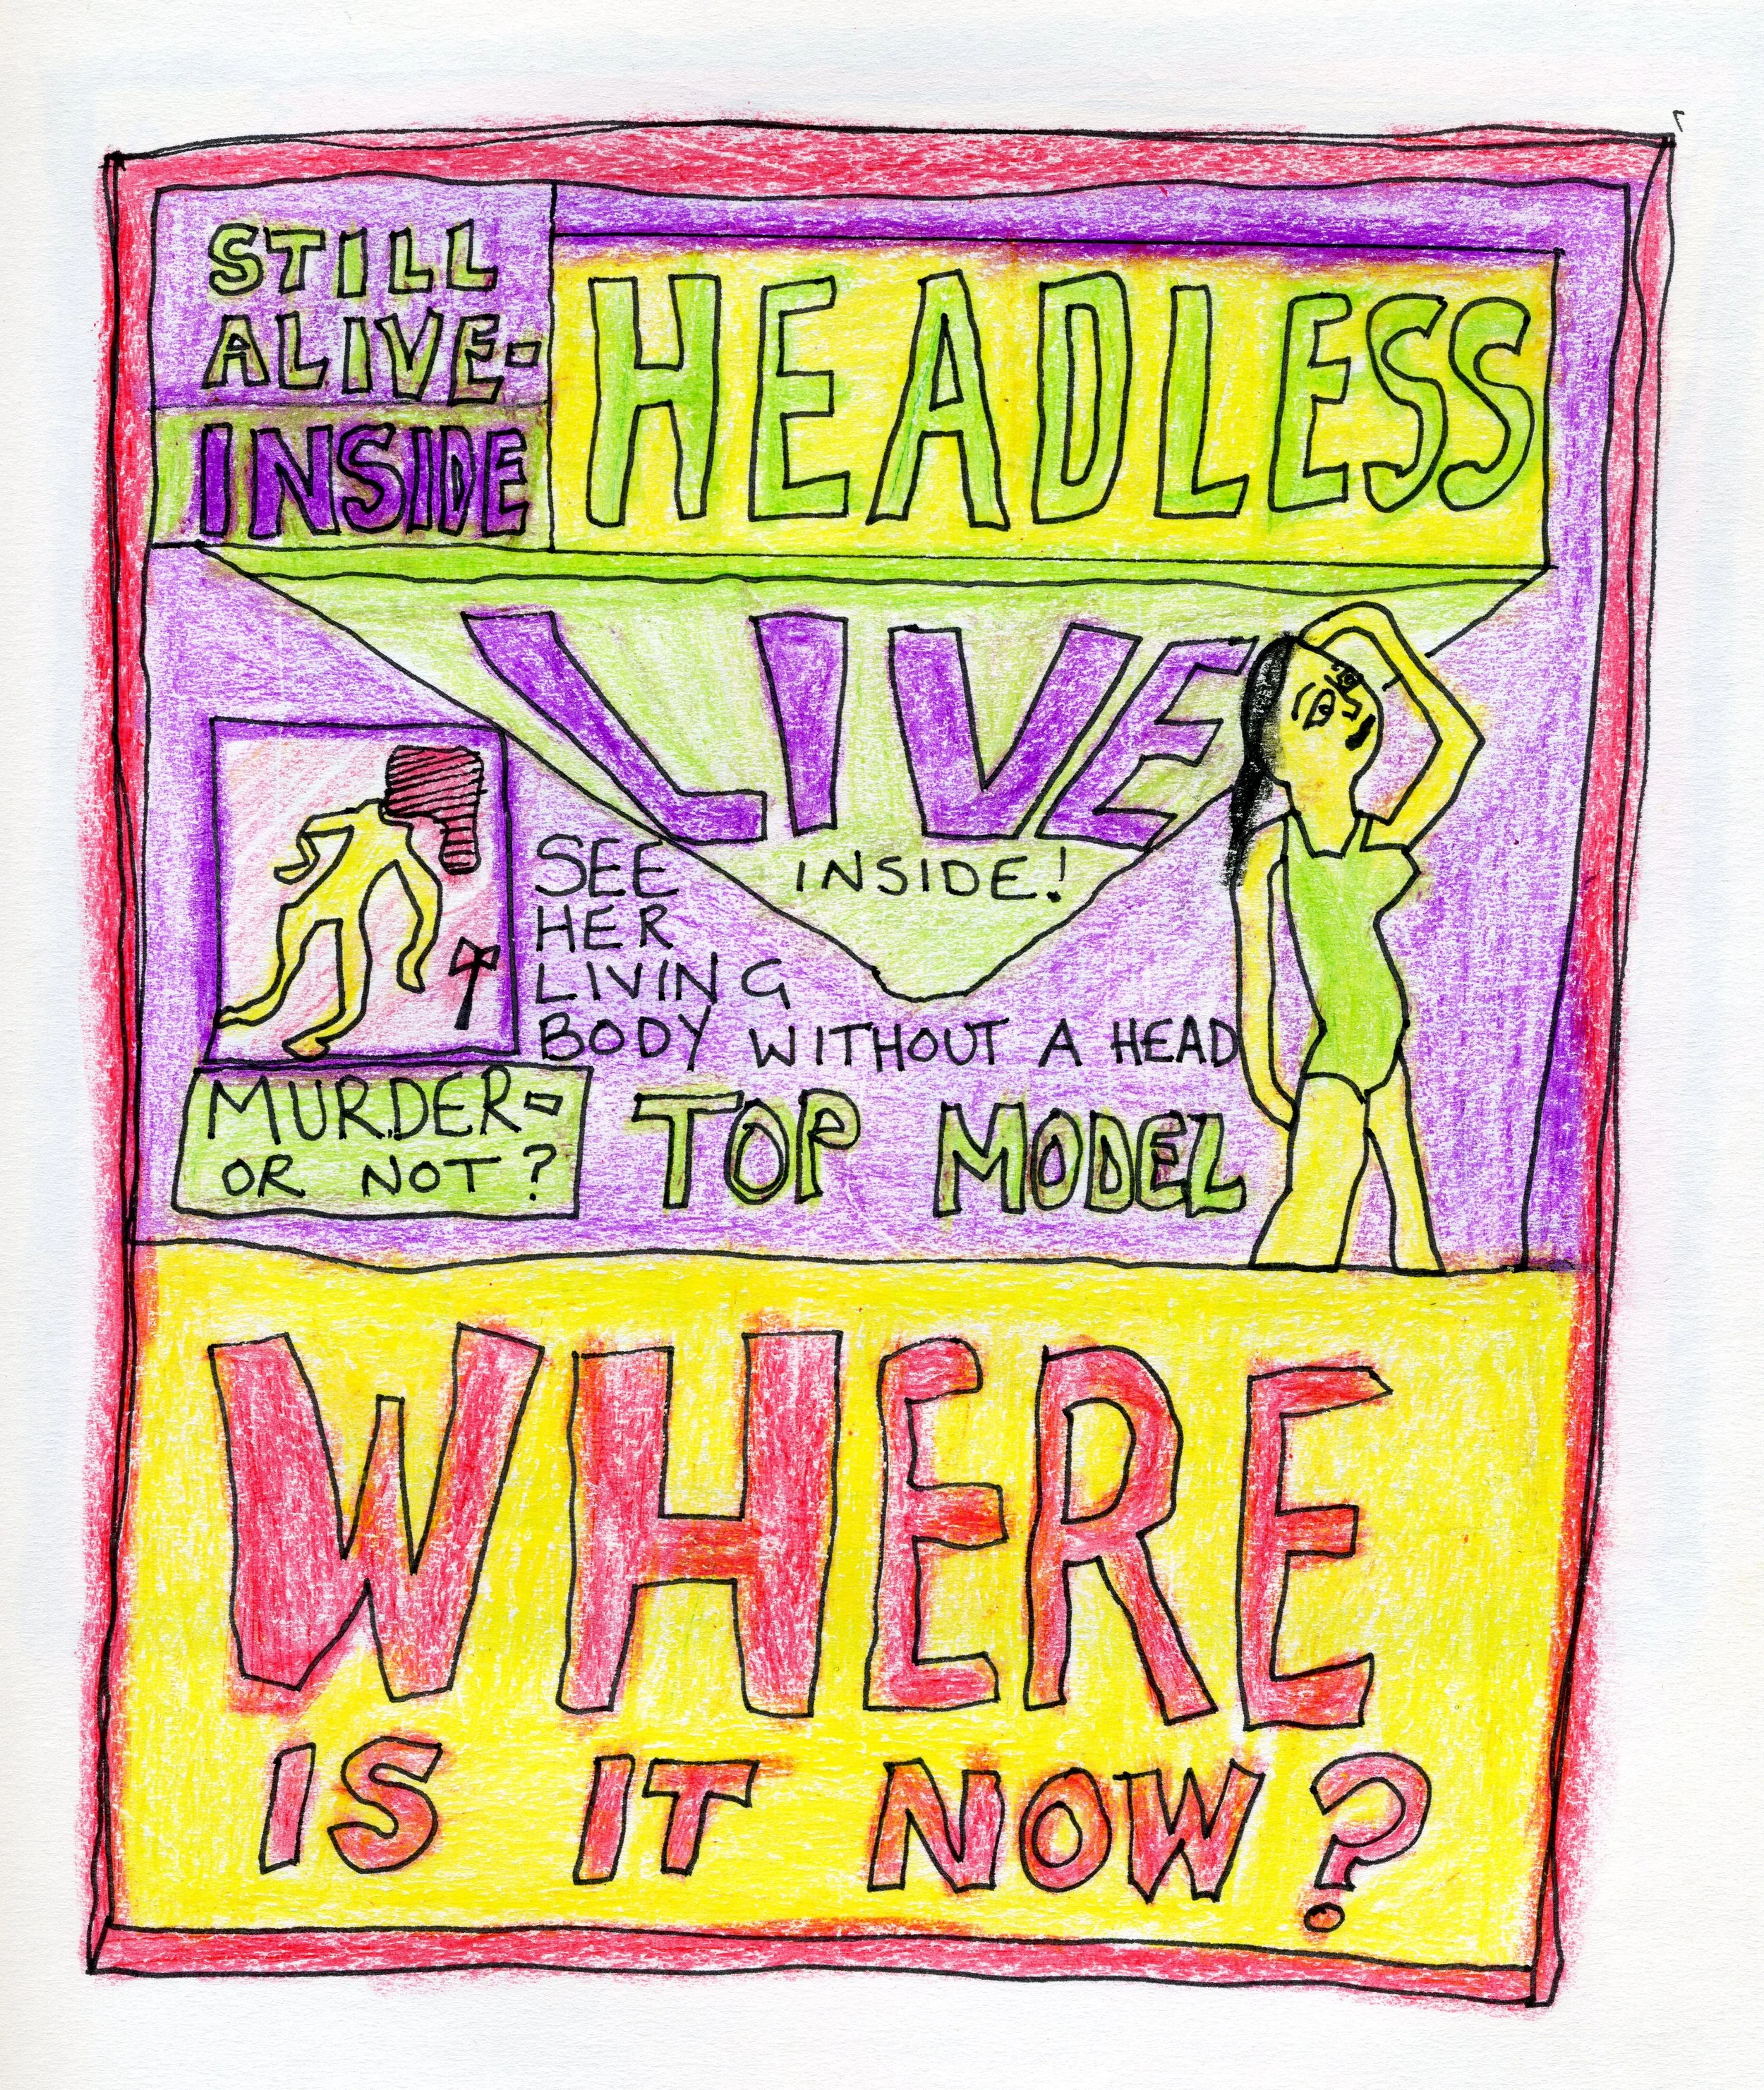 STILL
ALIVE-
INSIDE
HEADLESS
LIVE
INSIDE!
SEE
HER
LIVING
BODY WITHOUT A HEAD
MURDER-
OR NOT?
TOP MODEL
WHERE
IS IT NOW?